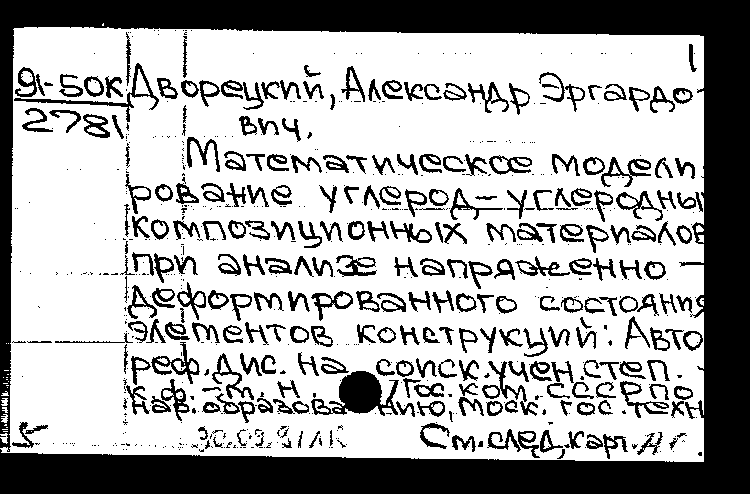 1
91-50К Дворецкий, Александр Эргардо-
2781 вич.
Математическое модели-
рование углерод-углеродных
композиционных материалов
при анализе напряженно-
деформированного состояния
элементов конструкций: Авто-
реф. дис. на соиск. учен. степ.
к.ф.-м.н. /Гос. ком. СССР по
нар. образованию, Моск. гос. техн
5 30.09.91 ЛК См. след. карт.